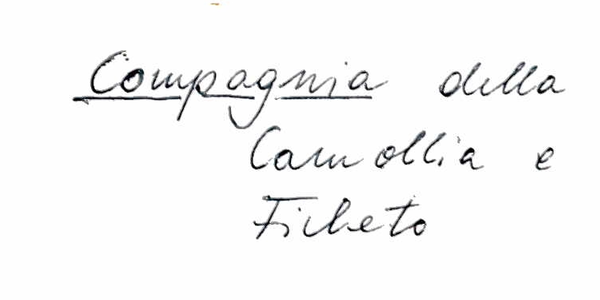 Compagnia della
Camollia e
Ficheto